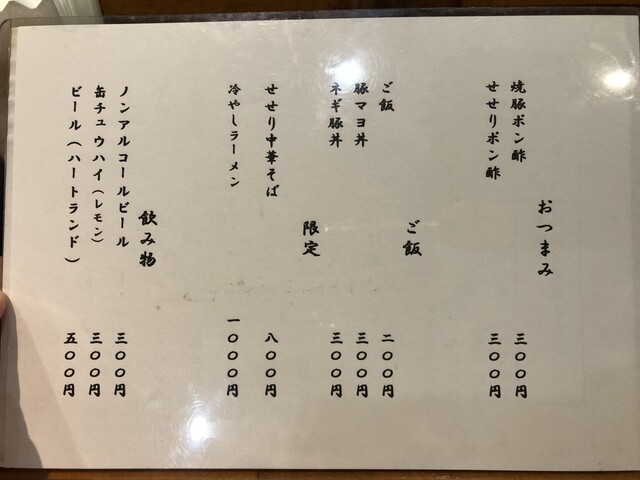 おつまみ
焼豚ポン酢 三〇〇円
せせりポン酢 三〇〇円
ご飯
ご飯 二〇〇円
豚マヨ丼 三〇〇円
ネギ豚丼 三〇〇円
限定
せせり中華そば 八〇〇円
冷やしラーメン 一〇〇〇円
飲み物
ノンアルコールビール 三〇〇円
缶チュウハイ（レモン） 三〇〇円
ビール（ハートランド） 五〇〇円